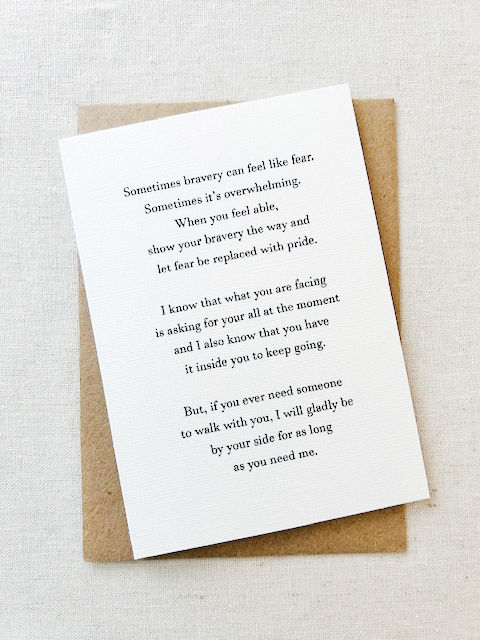 Sometimes bravery can feel like fear.
Sometimes it's overwhelming.
When you feel able,
show your bravery the way and
let fear be replaced with pride.
I know that what you are facing
is asking for your all at the moment
and I also know that you have
it inside you to keep going.
But, if you ever need someone
to walk with you, I will gladly be
by your side for as long
as you need me.